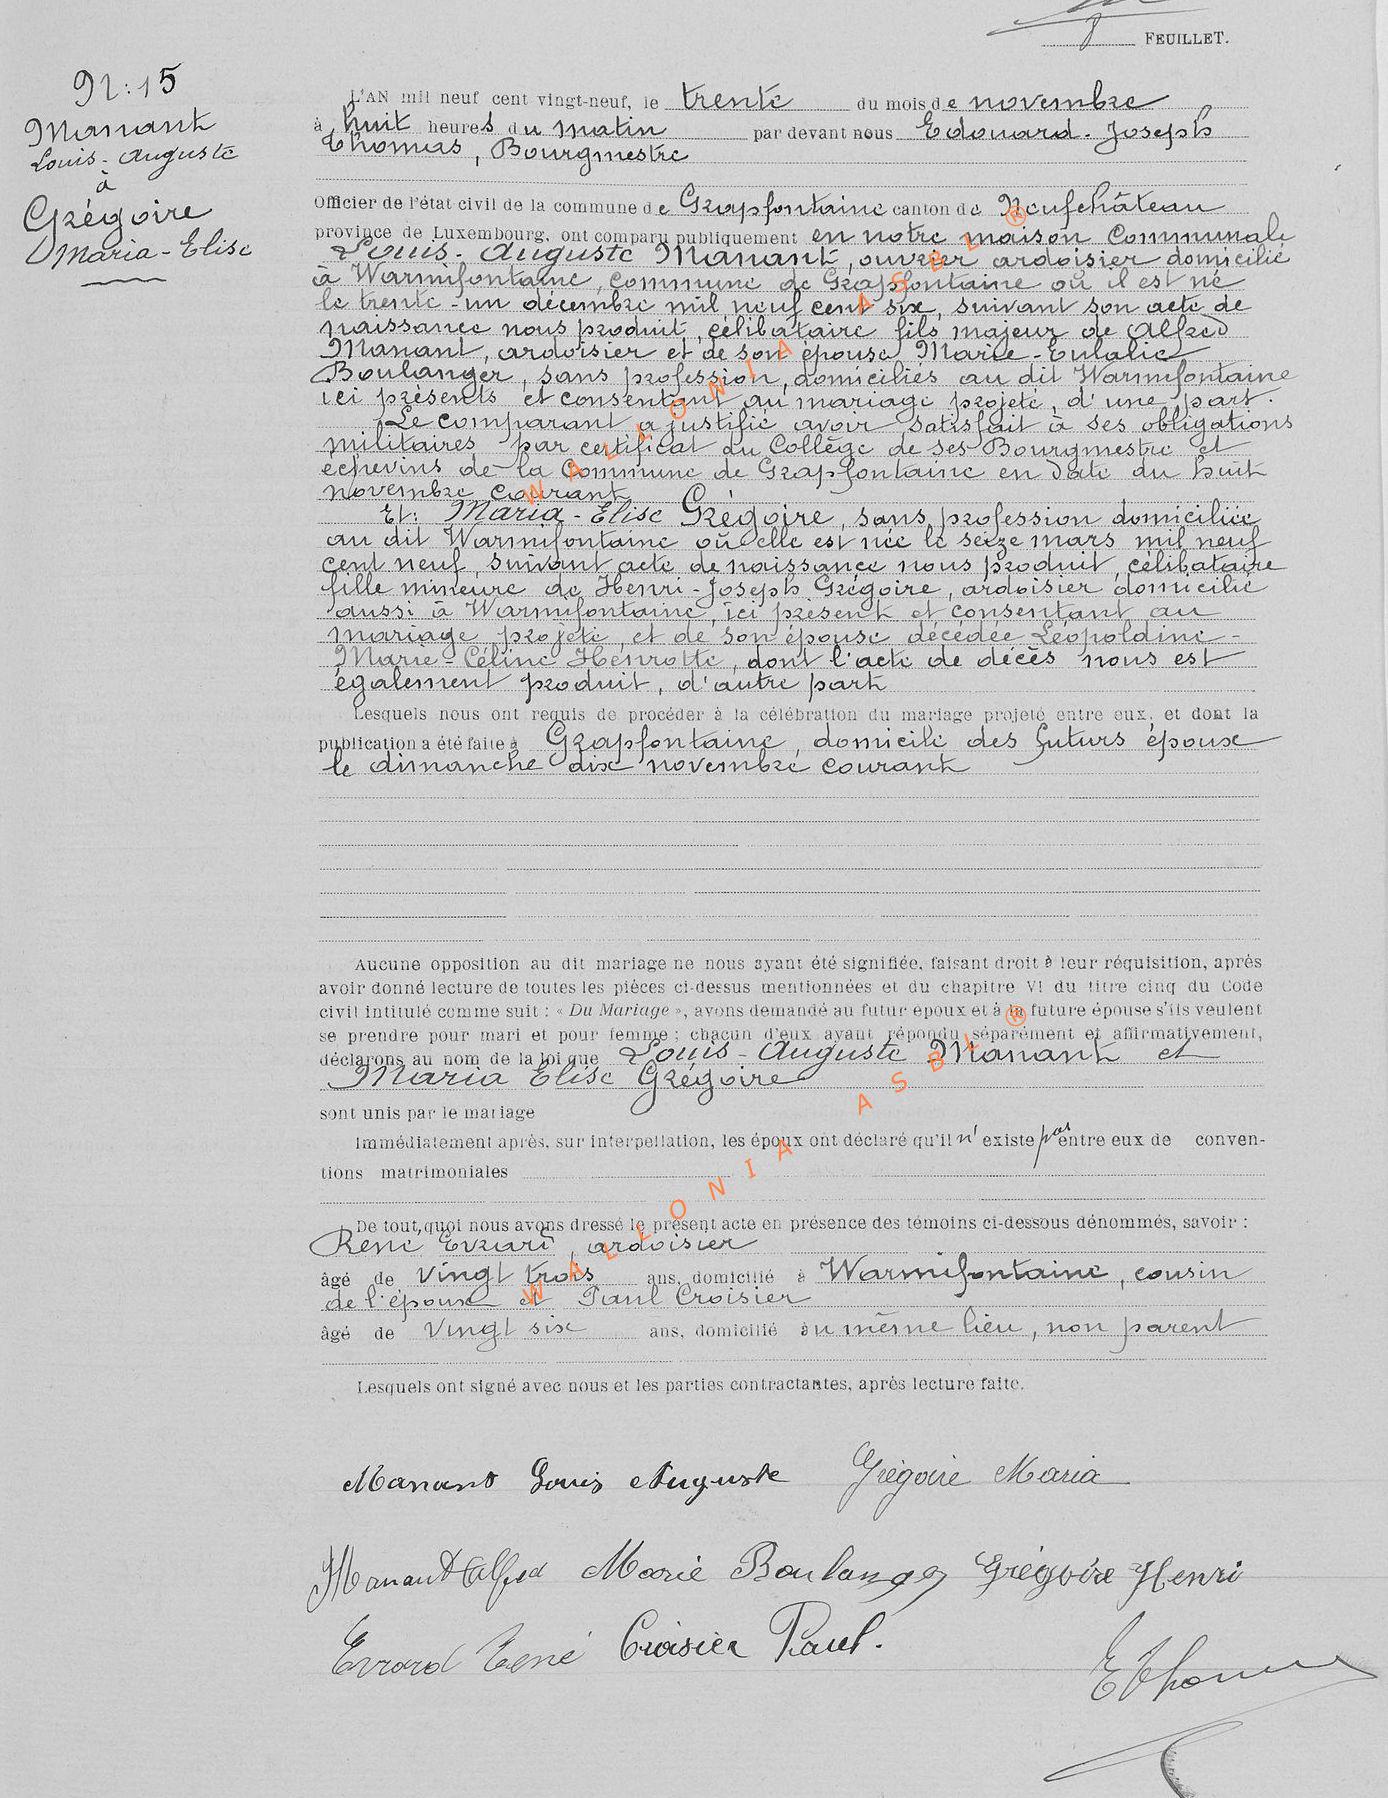 8 FEUILLET.
N: 15
Manant
Louis-Auguste
à
Grégoire
Maria-Elise
L'AN mil neuf cent vingt-neuf, le trente du mois de novembre
à huit heures du matin par devant nous Edouard-Joseph
Thomas, Bourgmestre
Officier de l'état civil de la commune de Grapfontaine canton de Neufchâteau
province de Luxembourg, ont comparu publiquement en notre maison Communale
Louis-Auguste Manant, ouvrier ardoisier domicilié
à Warmifontaine, commune de Grapfontaine où il est né
le trente-un décembre mil neuf cent six, suivant son acte de
naissance nous produit, célibataire fils majeur de Alfred
Manant, ardoisier et de son épouse Marie-Eulalie
Boulanger, sans profession, domiciliés au dit Warmifontaine
ici présents et consentant au mariage projeté, d'une part.
Le comparant a justifié avoir satisfait à ses obligations
militaires par certificat du Collège de ses Bourgmestre et
echevins de la Commune de Grapfontaine en date du huit
novembre courant
Et: Maria-Elise Grégoire, sans profession domiciliée
au dit Warmifontaine où elle est née le seize mars mil neuf
cent neuf, suivant acte de naissance nous produit, célibataire
fille mineure de Henri-Joseph Grégoire, ardoisier domicilié
aussi à Warmifontaine, ici présent et consentant au
mariage projeté, et de son épouse décédée Léopoldine-
Marie-Céline Henrotte, dont l'acte de décès nous est
également produit, d'autre part
Lesquels nous ont requis de procéder à la célébration du mariage projeté entre eux, et dont la
publication a été faite à Grapfontaine, domicile des futurs époux
le dimanche dix novembre courant
Aucune opposition au dit mariage ne nous ayant été signifiée, faisant droit à leur réquisition, après
avoir donné lecture de toutes les pièces ci-dessus mentionnées et du chapitre VI du titre cinq du Code
civil intitulé comme suit : « Du Mariage », avons demandé au futur époux et à la future épouse s'ils veulent
se prendre pour mari et pour femme ; chacun d'eux ayant répondu séparément et affirmativement,
déclarons au nom de la loi que Louis-Auguste Manant et
Maria Elise Grégoire
sont unis par le mariage
Immédiatement après, sur interpellation, les époux ont déclaré qu'il n'existe pas entre eux de conven-
tions matrimoniales
De tout quoi nous avons dressé le présent acte en présence des témoins ci-dessous dénommés, savoir :
René Evrard, ardoisier
âgé de vingt trois ans, domicilié à Warmifontaine, cousin
de l'épouse et Paul Croisier
âgé de vingt six ans, domicilié au même lieu, non parent
Lesquels ont signé avec nous et les parties contractantes, après lecture faite.
Manant Louis Auguste Grégoire Maria
Manant Alfred Marie Boulanger Grégoire Henri
Evrard René Croisier Paul.
E Thomas
WALLONIA ASBL ®
WALLONIA ASBL ®